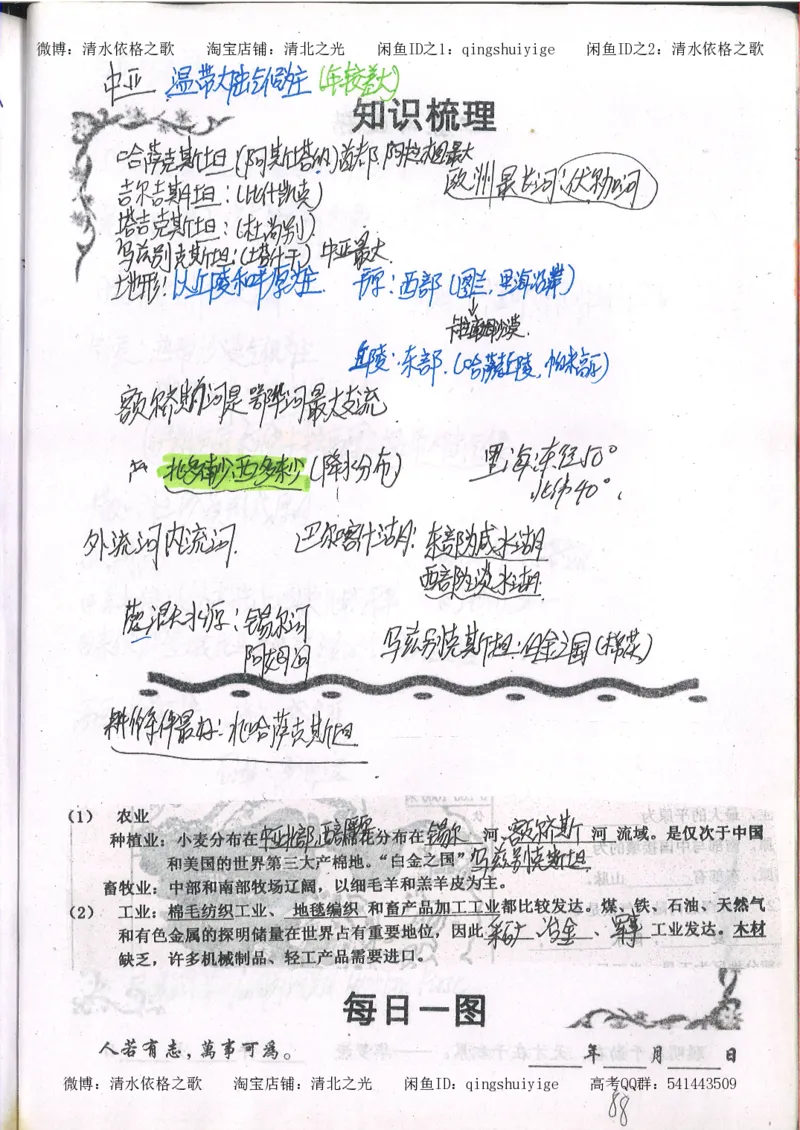 微博：清水依格之歌 淘宝店铺：清北之光 闲鱼ID之1：qingshuiyige 闲鱼ID之2：清水依格之歌
中亚 温带大陆气候为主（年较差大）
知识梳理
哈萨克斯坦（阿斯塔纳）首都 阿拉木图最大
欧洲最长河：伏尔加河
吉尔吉斯斯坦：（比什凯克）
塔吉克斯坦：（杜尚别）
乌兹别克斯坦：（塔什干）中亚最大
地形：以丘陵和平原为主 平原：西部（图兰，里海沿岸）
丘陵：东部（哈萨克丘陵，帕米高原）
额尔齐斯河是鄂毕河最大支流
北多南少，西多东少（降水分布）
里海：东经50°
北纬40°
外流河 内流河 巴尔喀什湖：东部为咸水湖
西部为淡水湖
灌溉水源：锡尔河
阿姆河
乌兹别克斯坦：白金之国（棉花）
耕作条件最好：北哈萨克斯坦
（1） 农业
种植业：小麦分布在中亚北部，棉花分布在锡尔河、额尔齐斯河流域。是仅次于中国
和美国的世界第三大产棉地。“白金之国”乌兹别克斯坦
畜牧业：中部和南部牧场辽阔，以细毛羊和羔羊皮为主。
（2） 工业：棉毛纺织工业、地毯编织和畜产品加工工业都比较发达。煤、铁、石油、天然气
和有色金属的探明储量在世界占有重要地位，因此采矿、冶金、军事工业发达。木材
缺乏，许多机械制品、轻工产品需要进口。
每日一图
人若有志，萬事可為。 年 月 日
微博：清水依格之歌 淘宝店铺：清北之光 闲鱼ID：qingshuiyige 高考QQ群：541443509
88